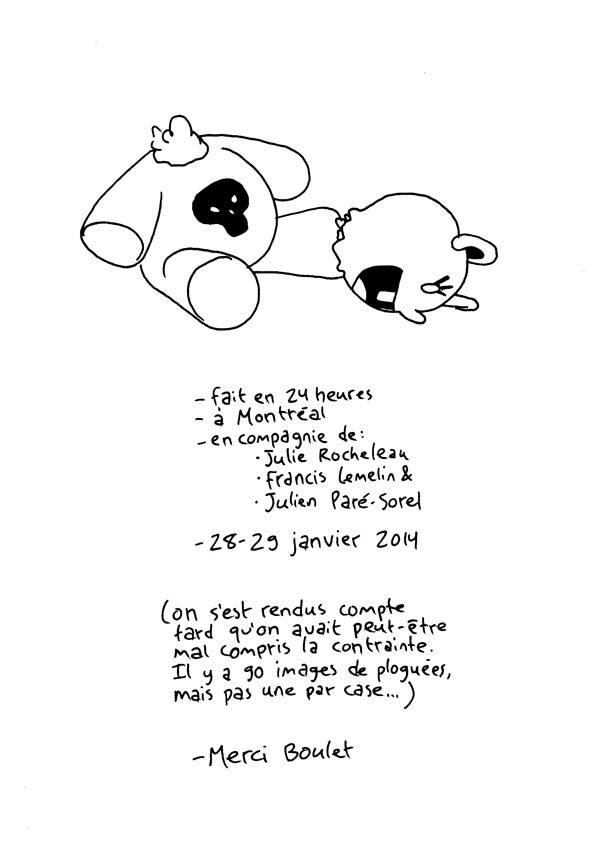 - fait en 24 heures
- à Montréal
- en compagnie de:
· Julie Rocheleau
· Francis Lemelin &
· Julien Paré-Sorel
- 28-29 janvier 2014
(on s'est rendus compte
tard qu'on avait peut-être
mal compris la contrainte.
Il y a 90 images de ploguées,
mais pas une par case...)
- Merci Boulet